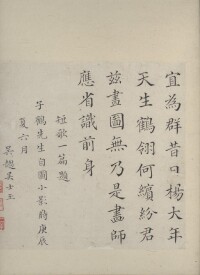 宜為群昔日楊大年
天生鶴翎何繽紛君
茲畫圖無乃是畫師
應省識前身
短歌一篇題
子鶴先生自圖小影時庚辰
夏六月
吳趨吳士玉